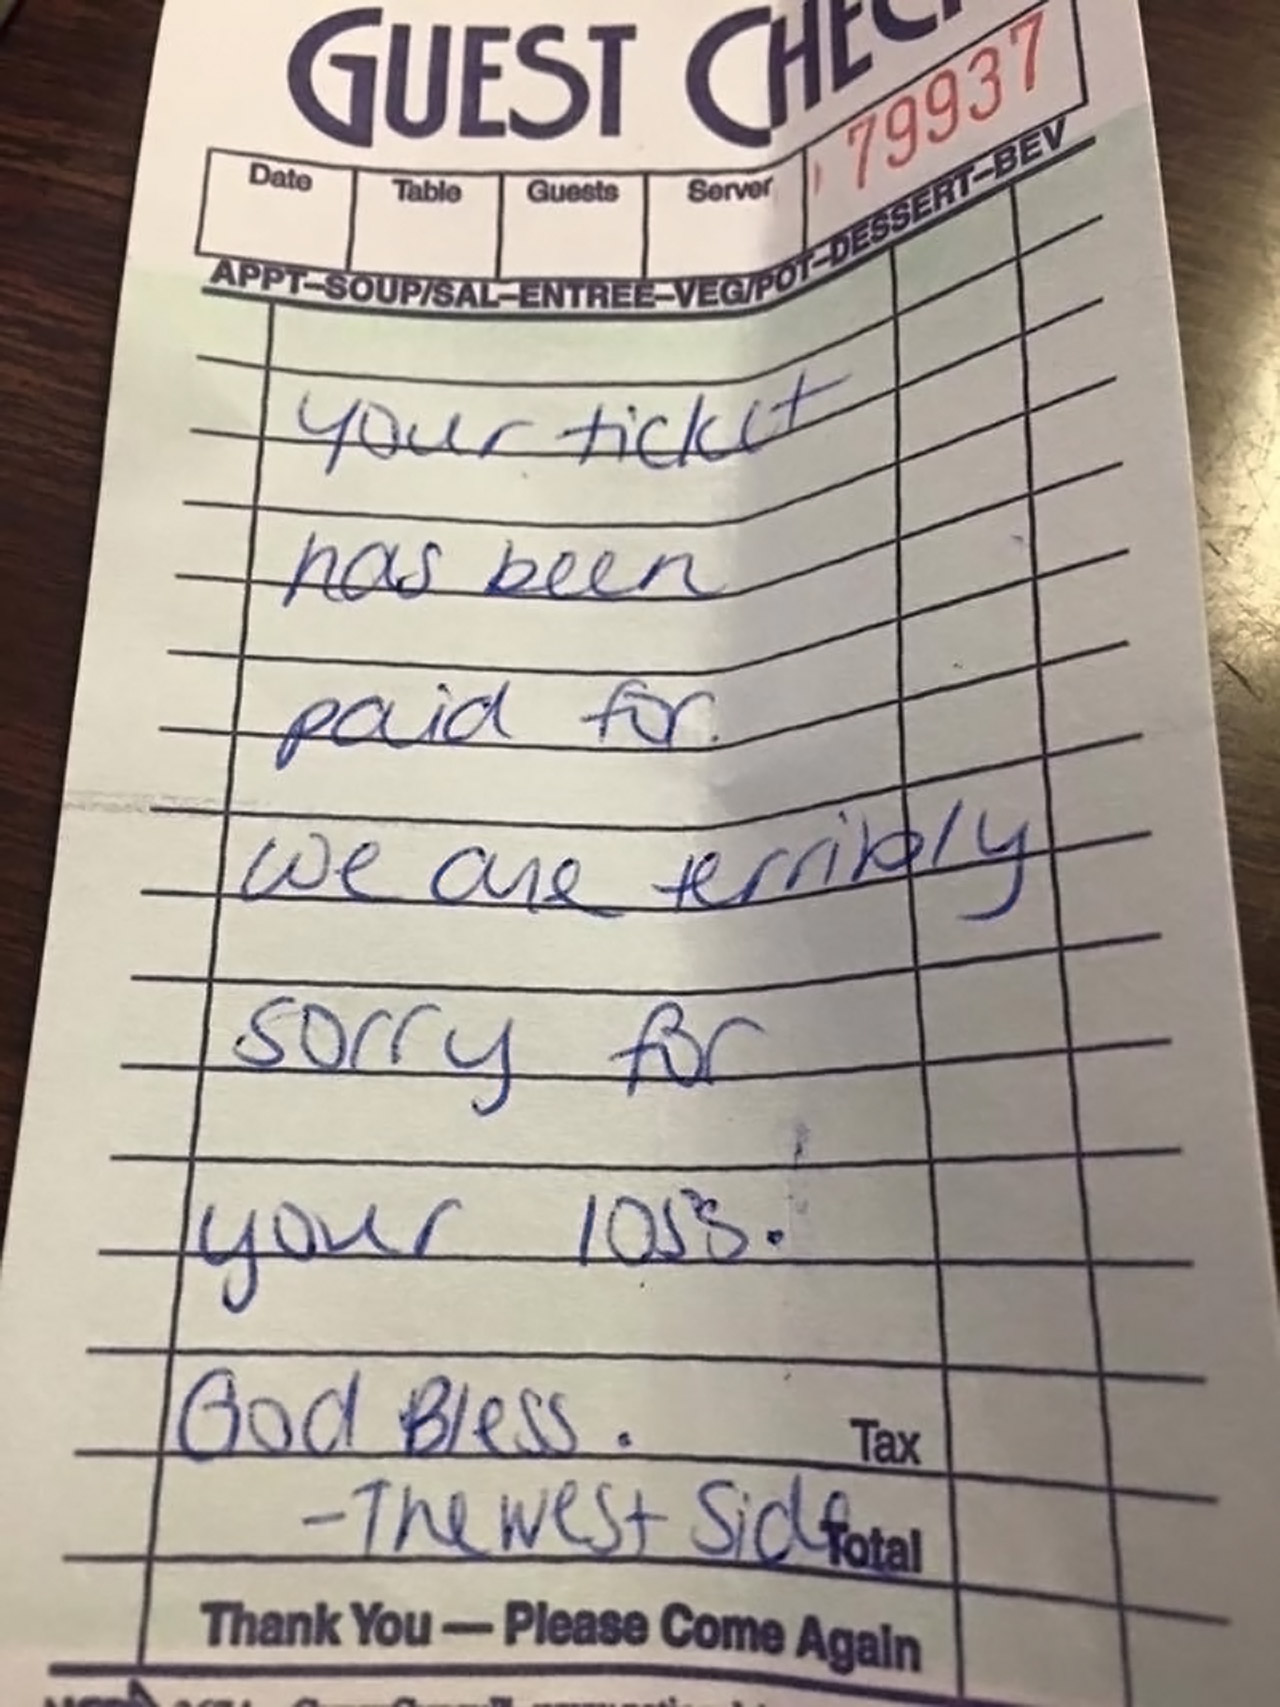 GUEST CHECK
79937
Date Table Guests Server
APPT–SOUP/SAL–ENTREE–VEG/POT–DESSERT–BEV
your ticket
has been
paid for.
we are terribly
sorry for
your loss.
God Bless. Tax
-The West Side Total
Thank You — Please Come Again